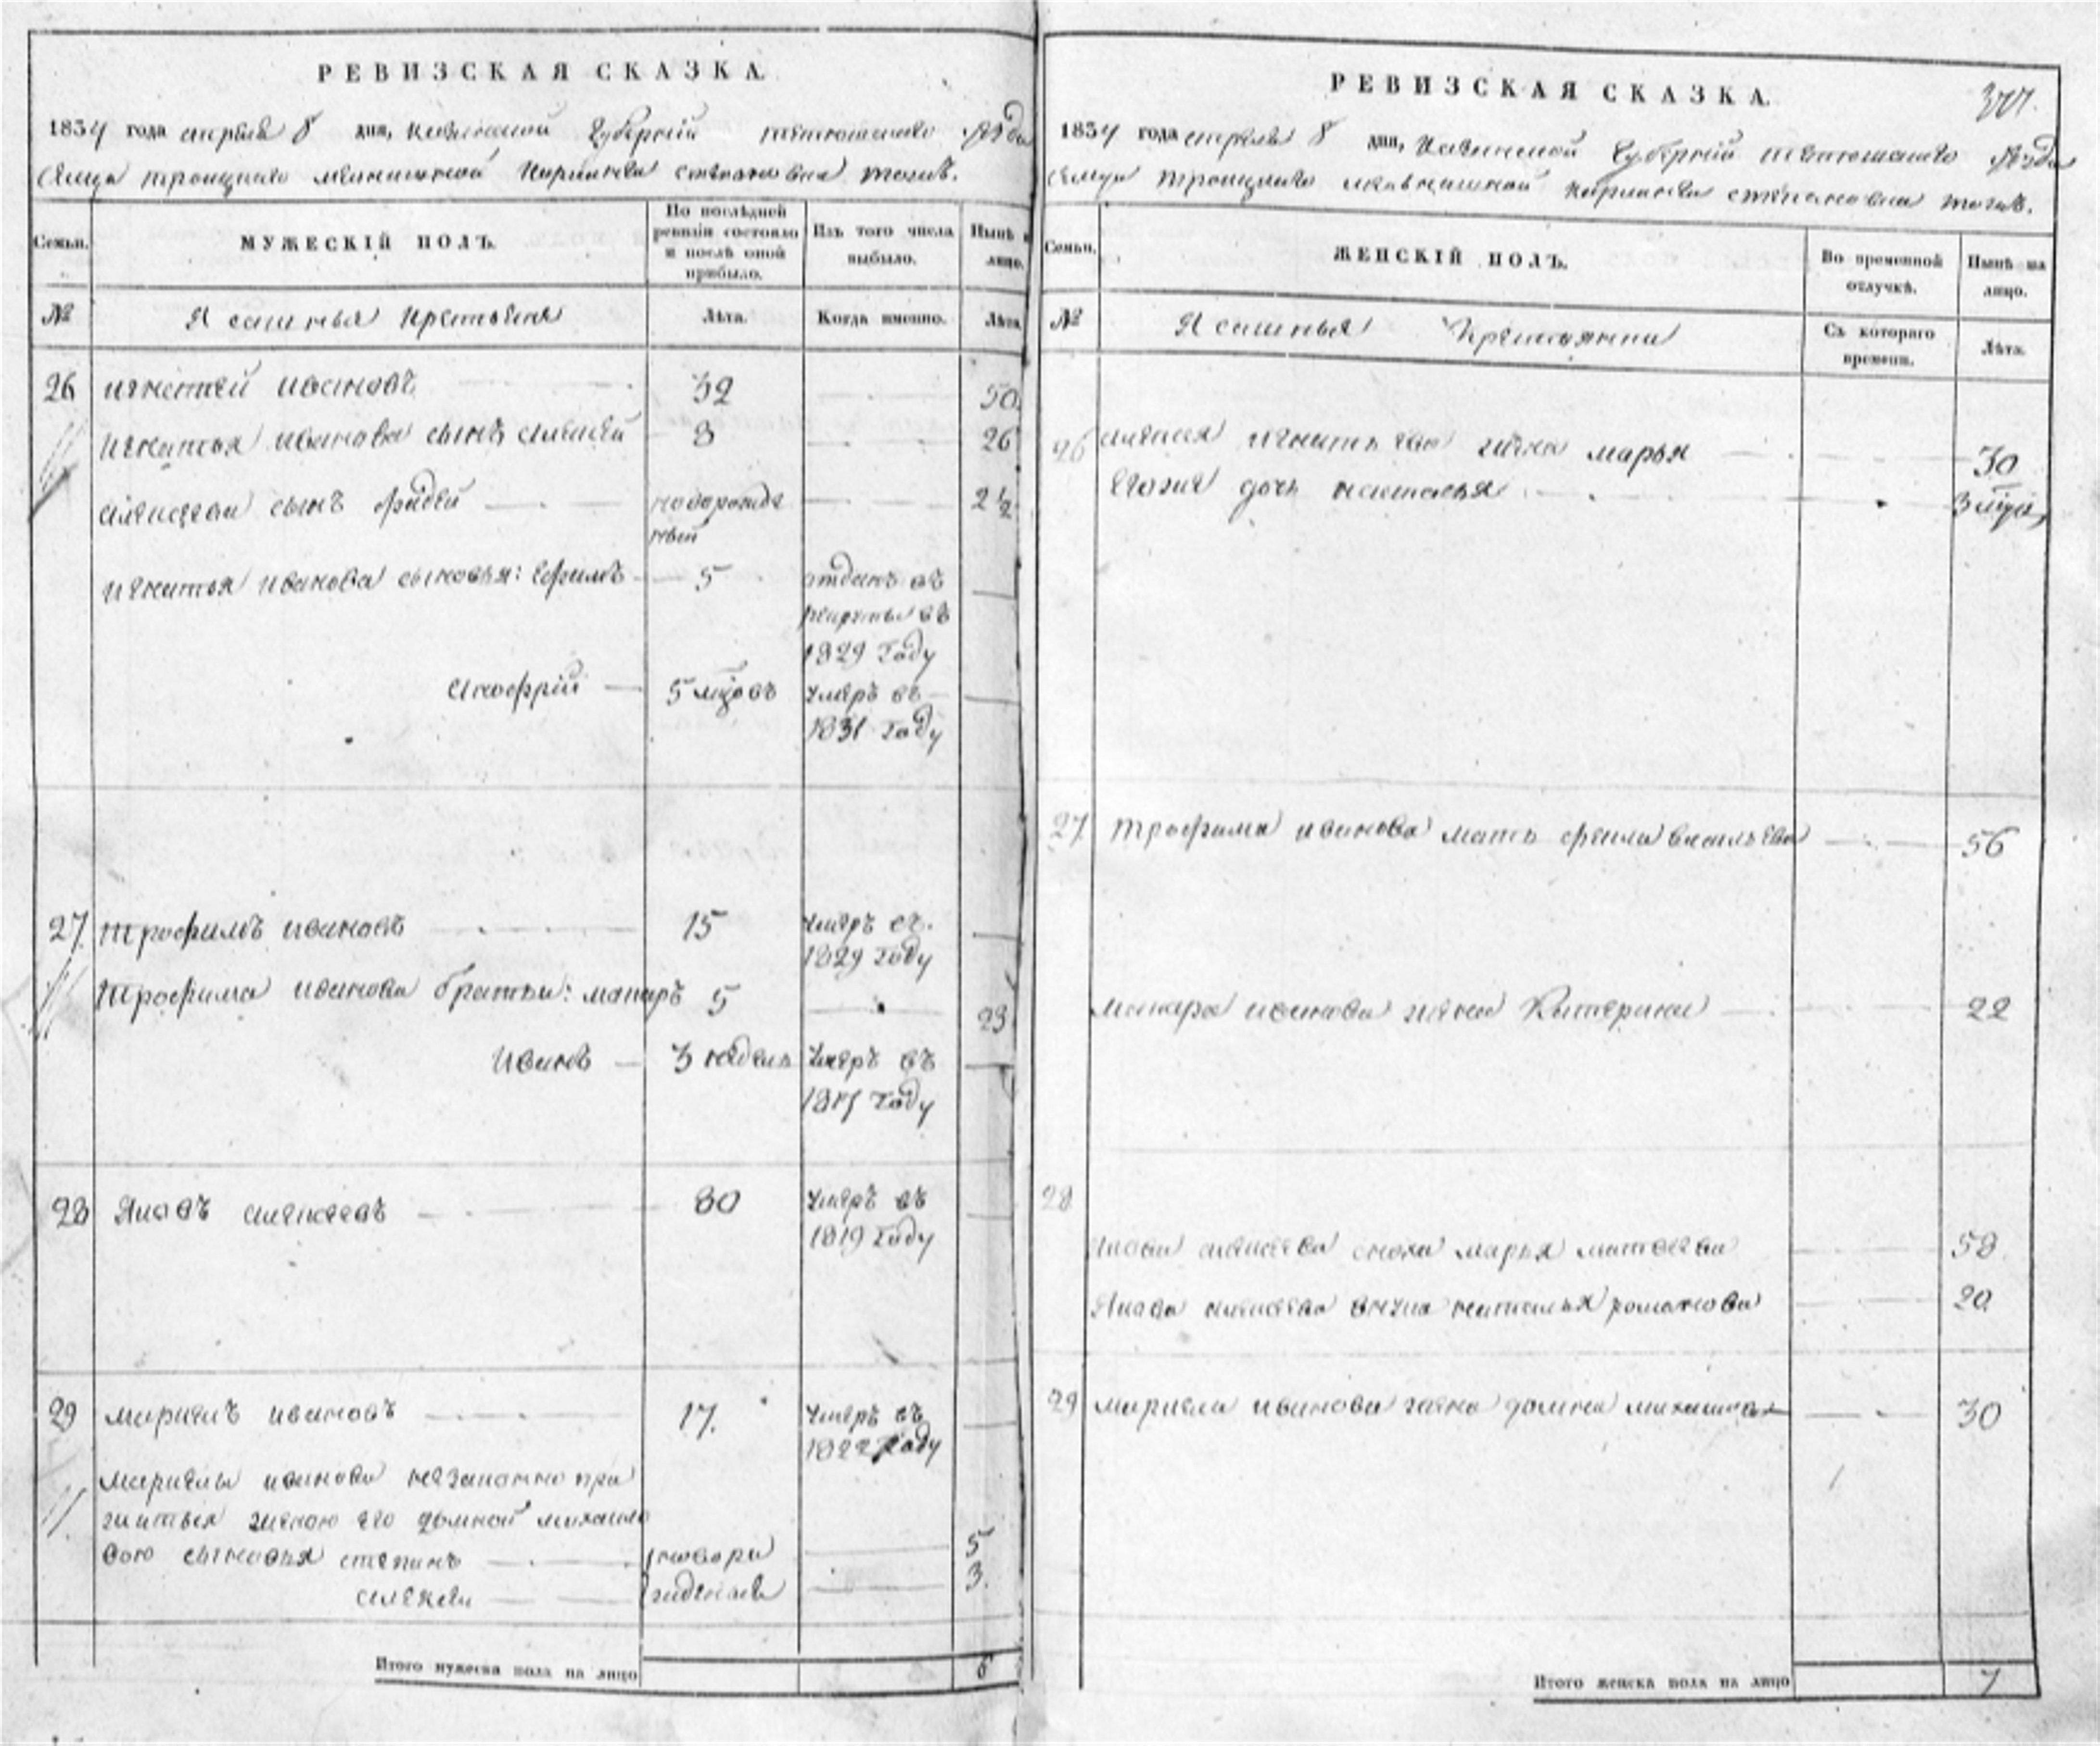 РЕВИЗСКАЯ СКАЗКА.
1834 года апреля 8 дня, казанской Губернiи тетюшского уезда
Селца троицкаго
Семьи.
МУЖЕСКIЙ ПОЛЪ.
По послѣдней ревизiи состояло и послѣ оной прибыло.
Изъ того числа выбыло.
Нынѣ на лицо.
№
Ясашныя крестьяня
Лѣта.
Когда именно.
Лѣта.
26 игнатей ивановъ 32 50
игнатья иванова сынъ алексей 8 26
алексеева сынъ новорожде 2½
нный
игнатья иванова сыновья: Ефимъ 5 отданъ въ
рекруты въ
1829 Году
анофрiй 5 мцовъ умеръ въ
1831 Году
27 трофимъ ивановъ 15 умеръ въ
1829 Году
трофима иванова братья: макаръ 5 23
иванъ 3 недель умеръ въ
1817 Году
28 Яковъ алексеевъ 80 умеръ въ
1819 Году
29 ивановъ 17. умеръ въ
1822 Году
иванова незаконно при
житыя женою его домной михаило
вою сыновья степанъ 5
алексей 3.
Итого мужеска пола на лицо 6
РЕВИЗСКАЯ СКАЗКА.
1834 года апреля 8 дня, казанской Губернiи тетюшского уезда
Селца троицкаго
Семьи.
ЖЕНСКIЙ ПОЛЪ.
Во временной отлучкѣ.
Нынѣ на лицо.
№
Ясашныя крестьянки
Съ котораго времени.
Лѣта.
26 алексея игнатьева жена марья 30
Егожъ дочь наталья 3 мца
27 трофима иванова мать васильева 56
макара иванова жена Катерина 22
28
Якова алексеева сноха марья матвеева 58
Якова алексеева внука наталья романова 20
29 иванова жена домна михаилова 30
Итого женска пола на лицо 7